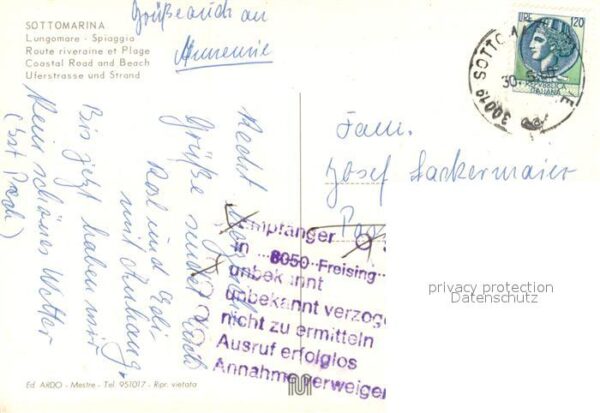 SOTTOMARINA
Lungomare - Spiaggia
Route riveraine et Plage
Coastal Road and Beach
Uferstrasse und Strand
Grüße auch an
Recht
Grüße sendet Euch
Rosl und Edi
mit Anhang.
Bis jetzt haben wir
kein schönes Wetter
(Sst Pech)
Ed. ARDO - Mestre - Tel 951017 - Ripr. vietata
LIRE 120
REPUBBLICA
ITALIANA
30019 SOTTO
30.5.
Fam.
Josef Lackermaier
Empfänger
in 8050 Freising
unbekannt
unbekannt verzoge
nicht zu ermitteln
Ausruf erfolglos
Annahme verweiger
privacy protection
Datenschutz